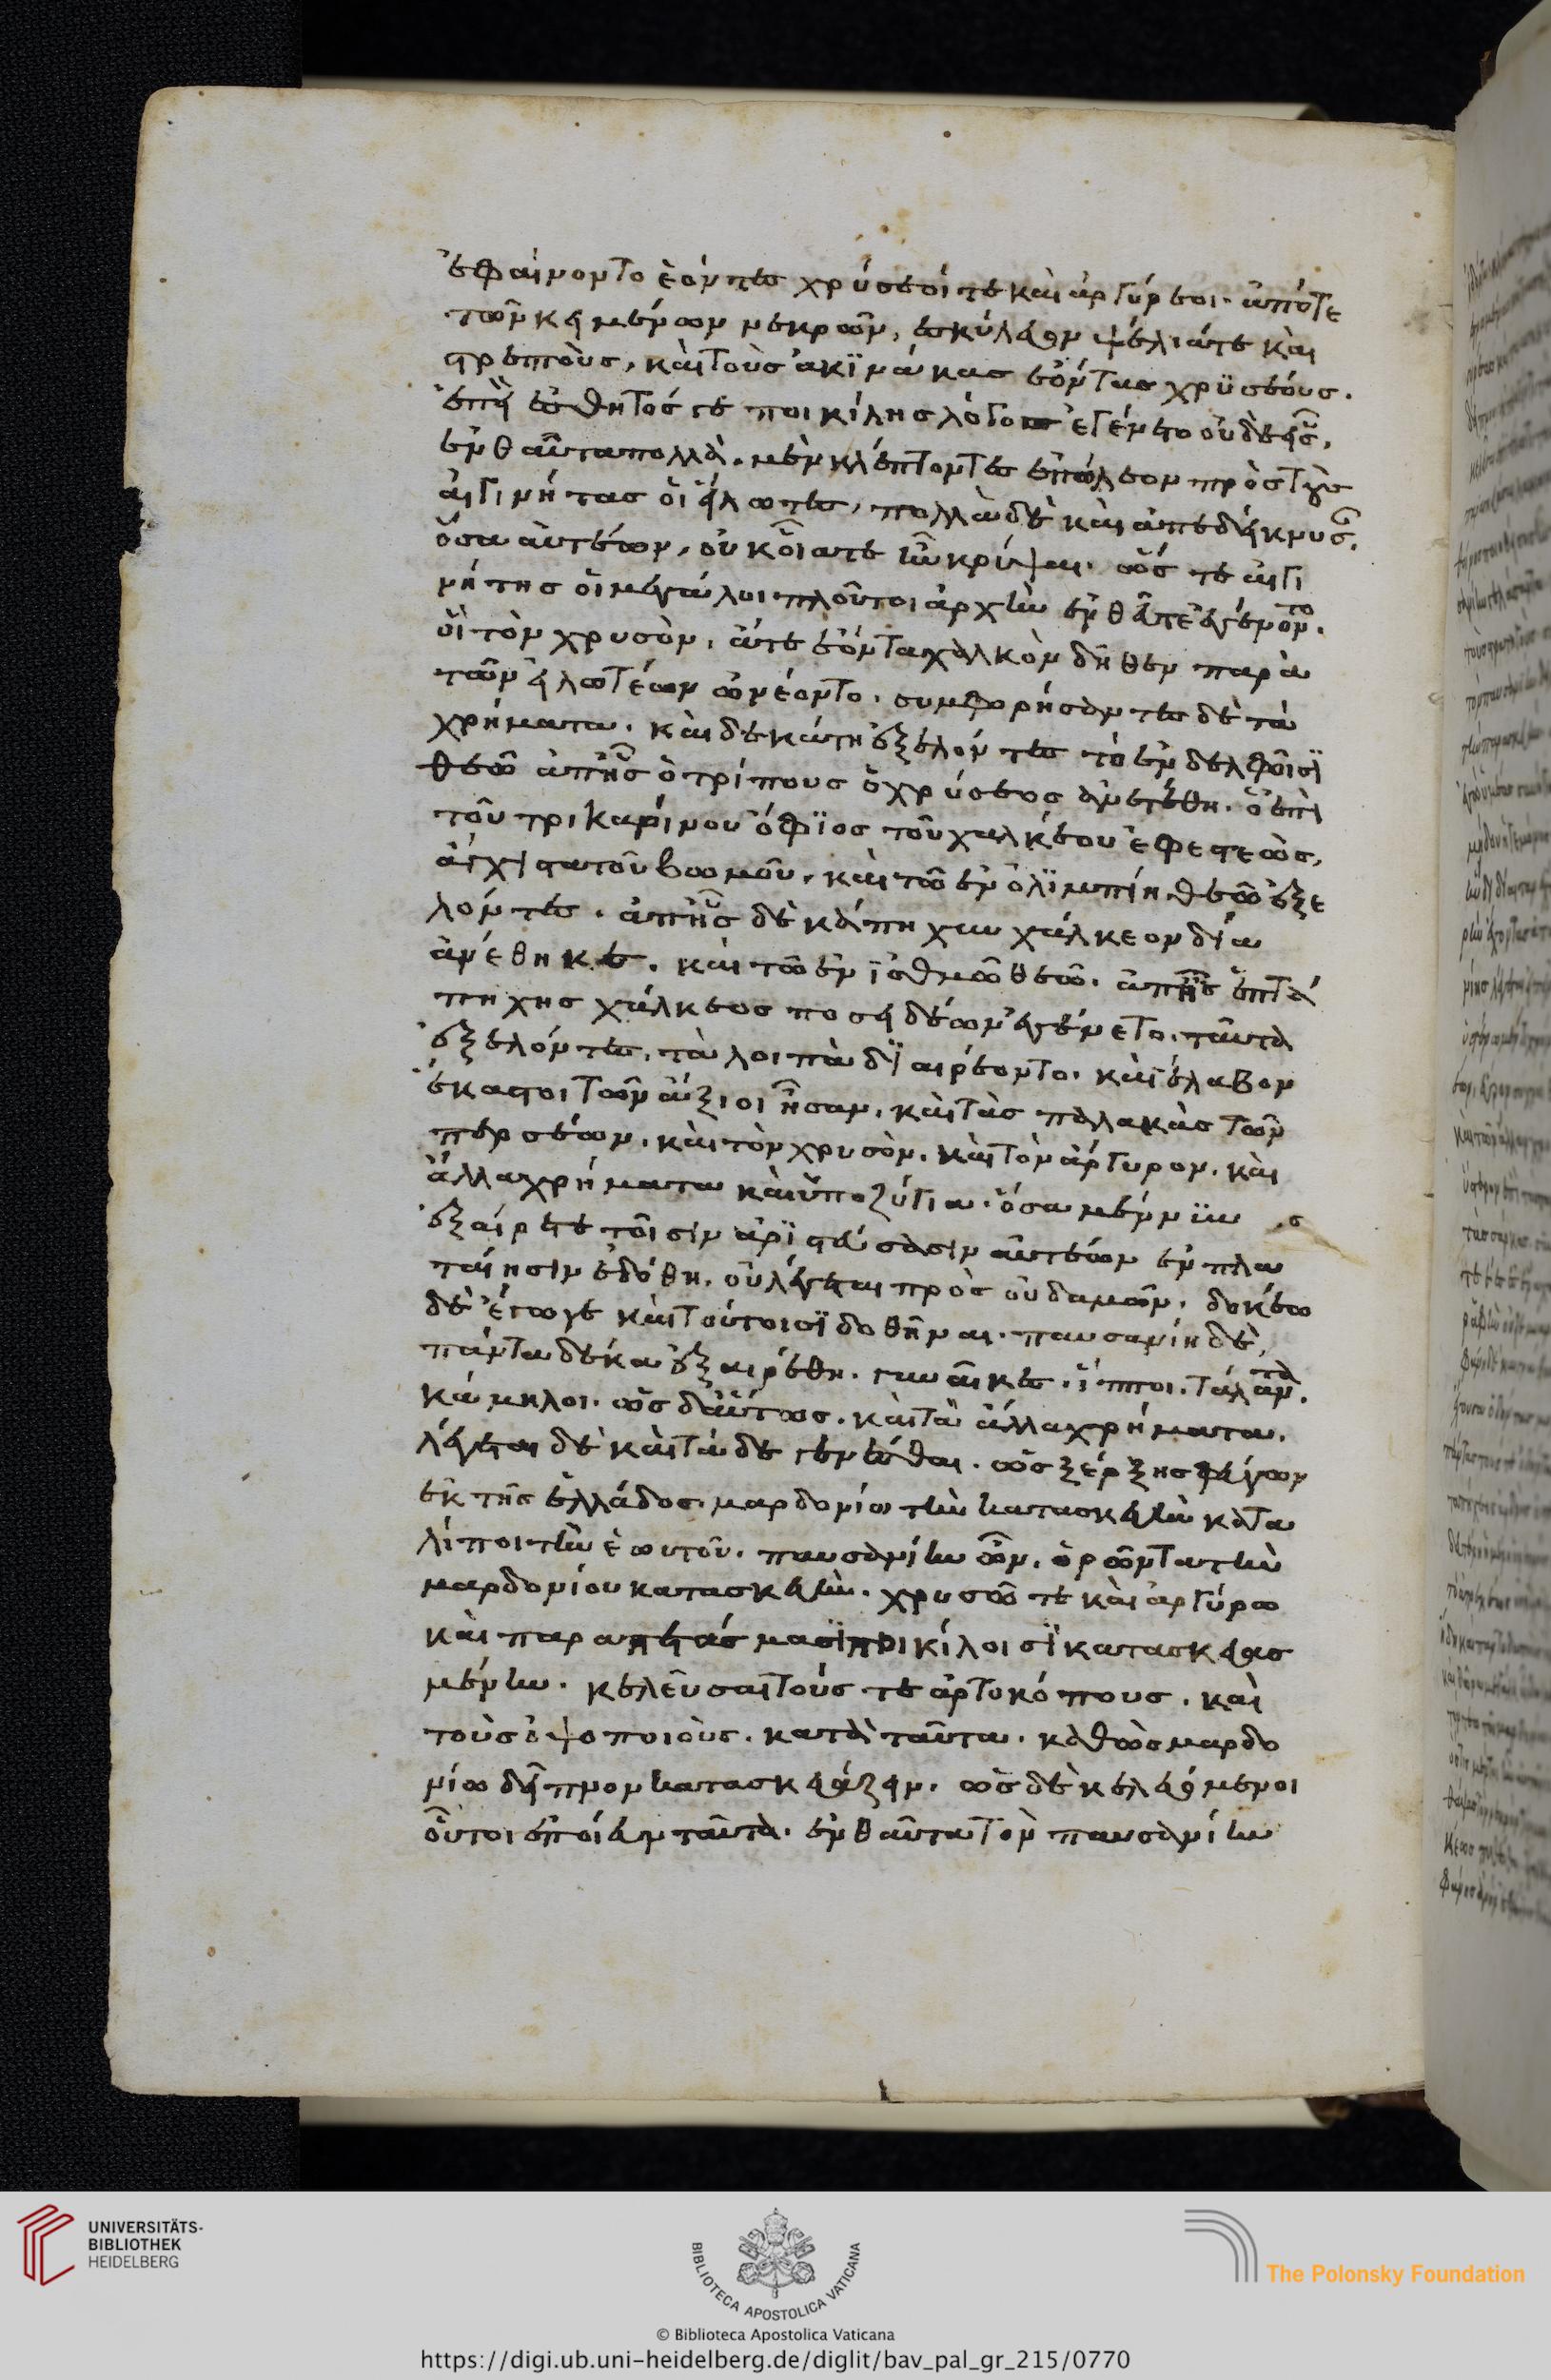 ἐφαίνοντο ἐόντες χρύσεοί τε καὶ ἀργύρεοι. ἀπό τε
τῶν κειμένων νεκρῶν, ἐσκύλευον ψέλιά τε καὶ
στρεπτοὺς, καὶ τοὺς ἀκϊνάκας ἐόντας χρϋσέους.
ἐπεὶ ἐσθῆτός γε ποικίλης λόγος ἐγένετο οὐδεείς,
ἐνθαῦτα πολλὰ. μὲν κλέπτοντες ἐπώλεον πρὸς τοὺς
αἰγινήτας οἱ εἵλωτες, πολλὰ δὲ καὶ ἀπεδείκνυσ,
ὅσα αὐτέων, οὐκ οἷά τε ἦν κρύψαι. ὥς τε αἰγι
νήτησ οἱ μεγάλοι πλοῦτοι ἀρχὴν ἐνθαῦτε ἐγένοντο.
οἳ τὸν χρυσὸν, ἅτε ἐόντα χαλκὸν δῆθεν παρὰ
τῶν εἱλωτέων ὠνέοντο. συμφορήσαντες δὲ τὰ
χρήματα. καὶ δεκάτη ἐξελόντες τὸ ἐν δελφοῖσϊ
θεῶ ἀπ' ἧς ὁ τρίπους ὁ χρύσεος ἀνετέθη. ὁ ἐπὶ
τοῦ τρικαρήνου ὄφϊος τοῦ χαλκέου ἐφεστεὼς,
ἄγχιστα τοῦ βωμοῦ. καὶ τῶ ἐν ὀλϊμπίη θεῶ ἐξε
λόντες. ἀπ' ἧς δεκάπηχυν χάλκεον δία
ἀνέθηκε. καὶ τῶ ἐν ἰσθμῶ θεῶ. ἀπ' ἧς ἑπτὰ
πηχης χάλκεος ποσειδέων ἐγένετο. ταῦτα
ἐξελόντες, τὰ λοιπὰ δϊαιρέοντο. καὶ ἔλαβον
ἕκαστοι τῶν ἄξιοι ἦσαν. καὶ τὰς παλλακὰς τῶν
περσέων. καὶ τὸν χρυσὸν. καὶ τὸν ἄργυρον. καὶ
ἄλλα χρήματα καὶ ὑποζύγια. ὅσα μέν νϋν
ἐξαίρετε τοῖσιν ἀρϊστεύσασιν αὐτέων ἐν πλα
ταίησιν ἐδόθη. οὐ λέγεται πρὸς οὐδαμῶν. δοκέω
δὲ ἔγωγε καὶ τούτοισϊ δοθῆναι. παυσανίη δὲ,
πάντα δέκα ἐξαιρέθη. γυναῖκες. ἵπποι. τάλαντα.
κάμηλοι. ὣς δ' αὔτως. καὶ τὰ ἄλλα χρήματα.
λέγεται δὲ καὶ τάδε γενέσθαι. ὡς ξέρξης φεύγων
ἐκ τῆς ἑλλάδος. μαρδονίω τὴν κατασκευὴν κατα
λίποι τὴν ἑωυτοῦ. παυσανίην ὦν. ὁρῶντα τὴν
μαρδονίου κατασκευὴν. χρυσῶ τε καὶ ἀργύρω
καὶ παραπετάσμασϊ ποικίλοισϊ κατασκευασ
μένην. κελεῦσαι τούς τε ἀρτοκόπους. καὶ
τοὺς ὀψοποιοὺς. κατὰ ταῦτα. καθὼς μαρδο
νίω δεῖπνον κατασκευάζειν. ὡς δὲ κελευόμενοι
οὗτοι ἐποίευν ταῦτα. ἐνθαῦτα τὸν παυσανίην
UNIVERSITÄTS-
BIBLIOTHEK
HEIDELBERG
BIBLIOTECA APOSTOLICA VATICANA
The Polonsky Foundation
© Biblioteca Apostolica Vaticana
https://digi.ub.uni-heidelberg.de/diglit/bav_pal_gr_215/0770